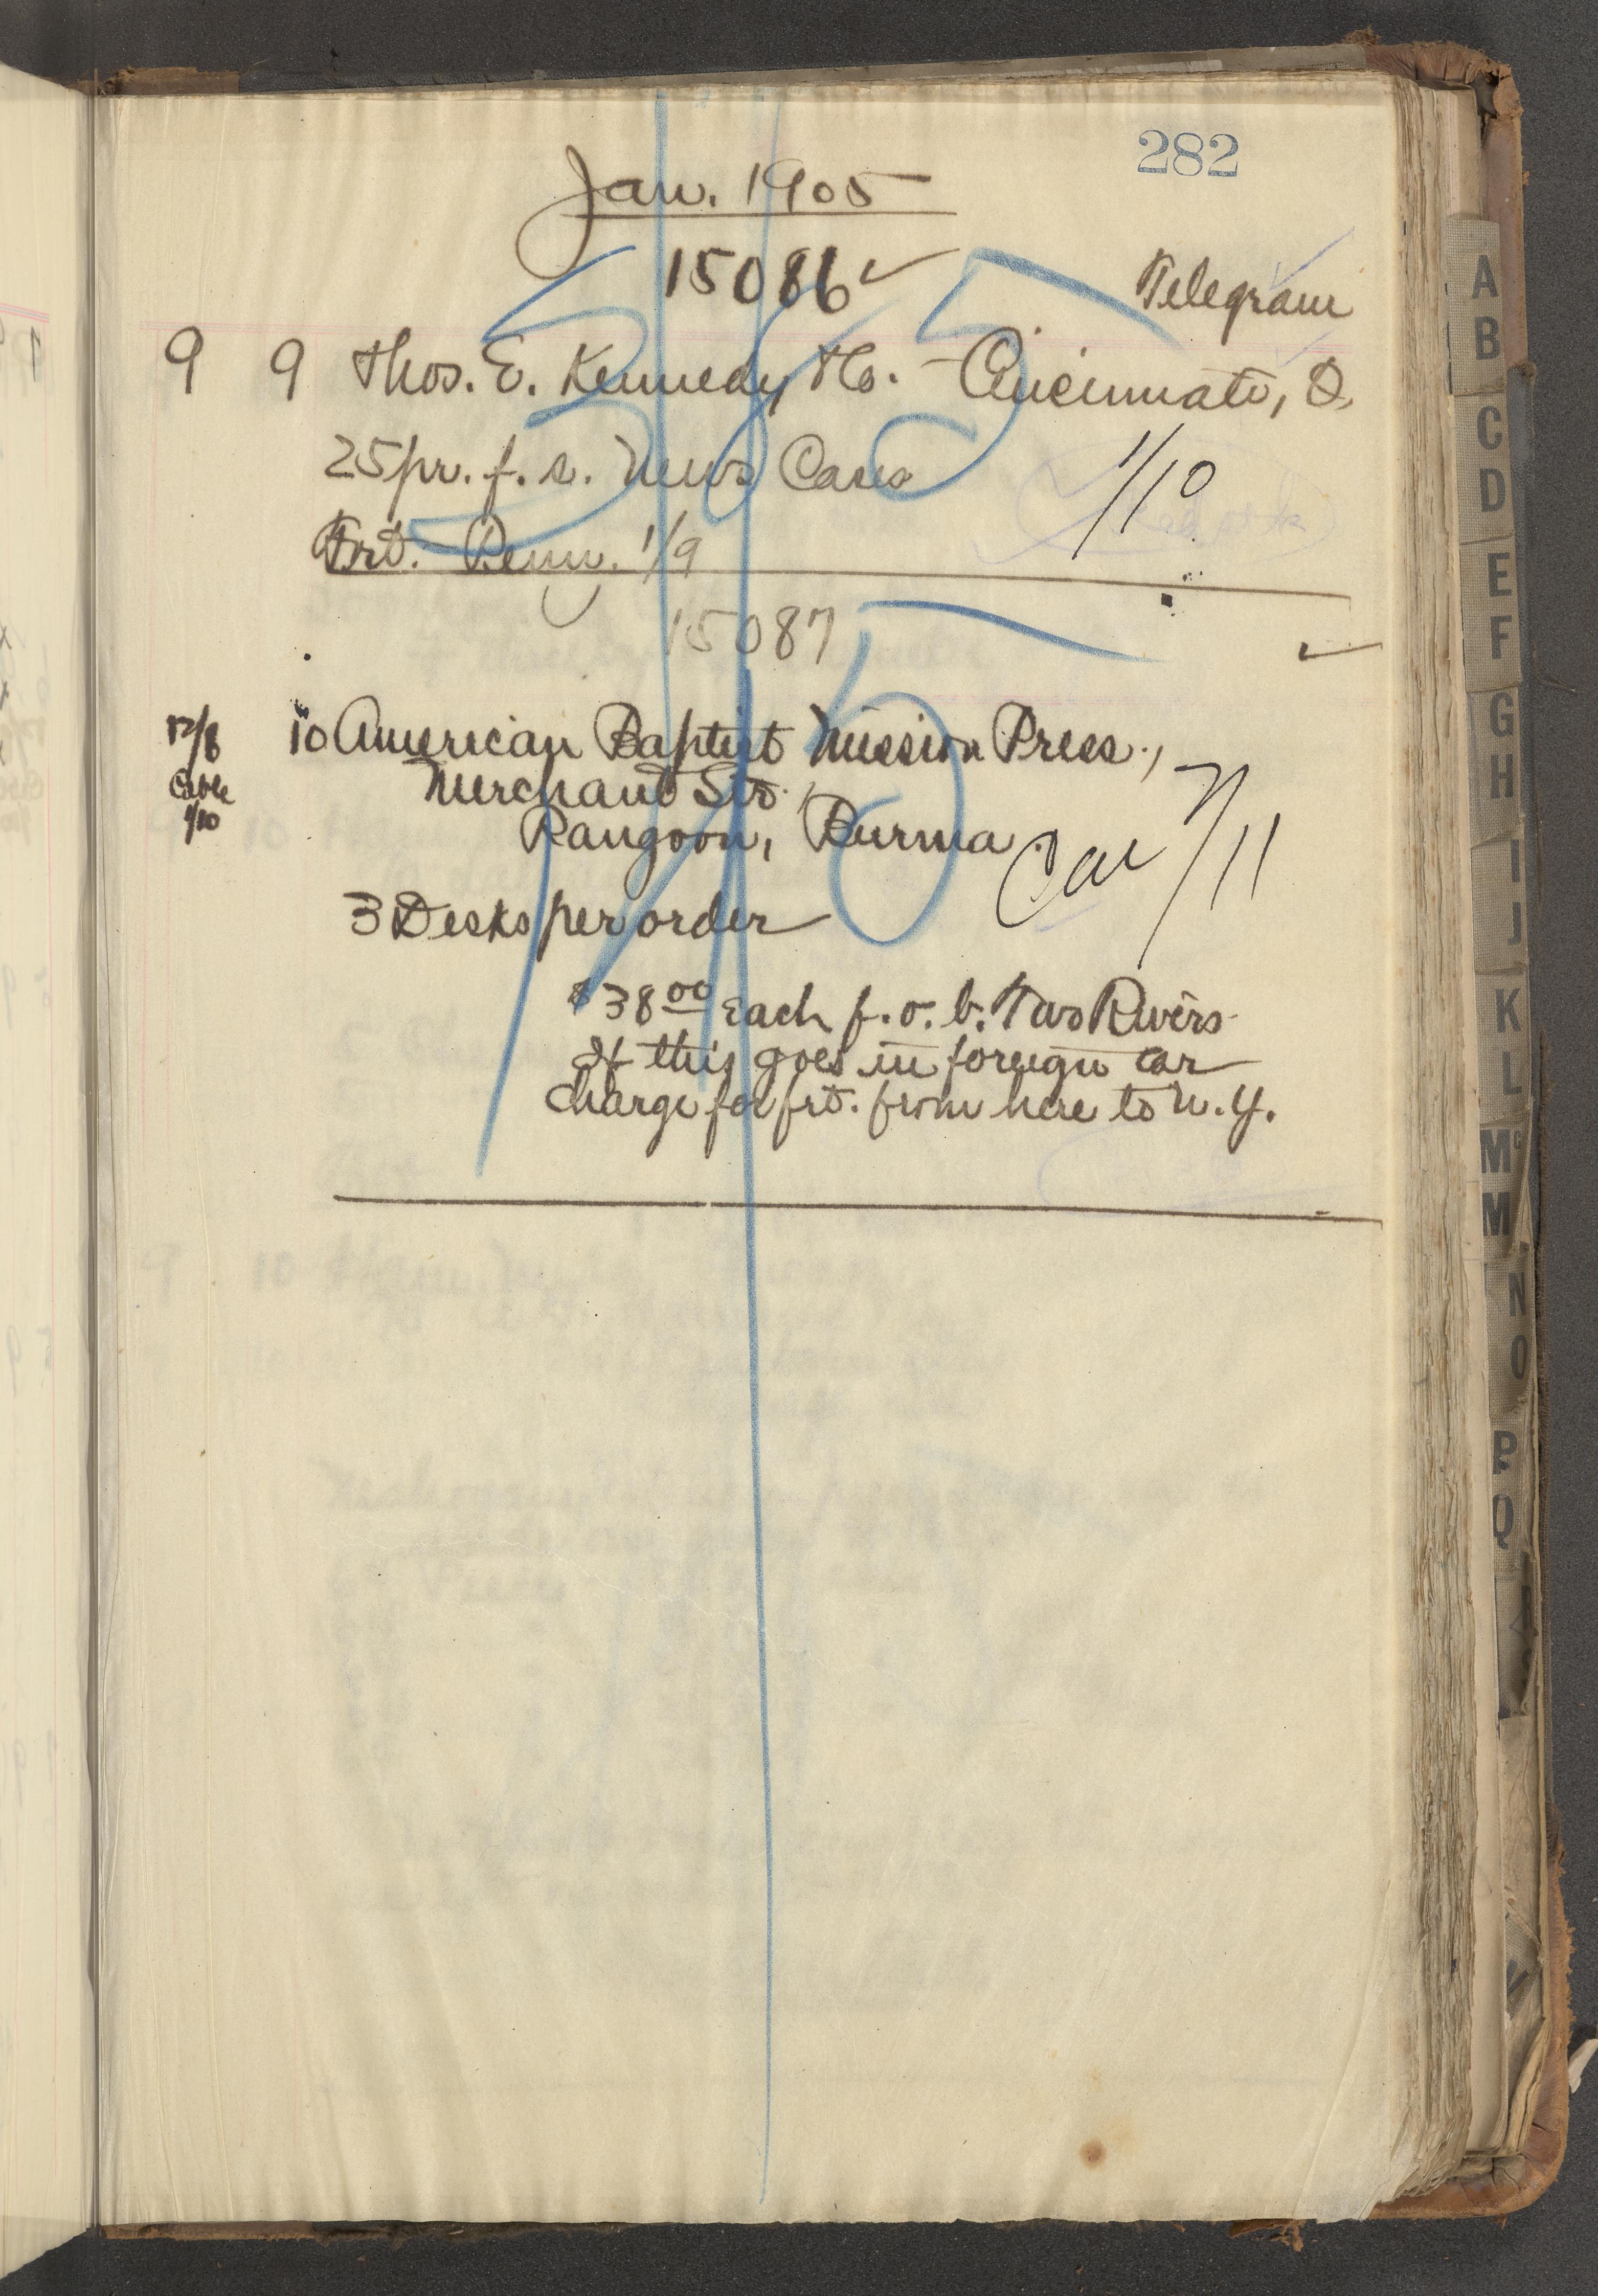 282
Jan. 1905
15086 ✓
Telegram
9 9 Thos. E. Kennedy & Co. - Cincinnati, O.
25 pr. f. s. News Cases
1/10
Frt. - Penn. 1/9
585
15087 ✓
12/8 10 American Baptist Mission Press.,
Cable Merchant Str.
1/10 Rangoon, Burma.
Car 1/11
3 Desks per order
$38.00 Each f. o. b. Two Rivers
If this goes in foreign car
Charge for frt. from here to N. Y.
A
B
C
D
E
F
G
H
I
J
K
L
Mc
M
N
O
P
Q